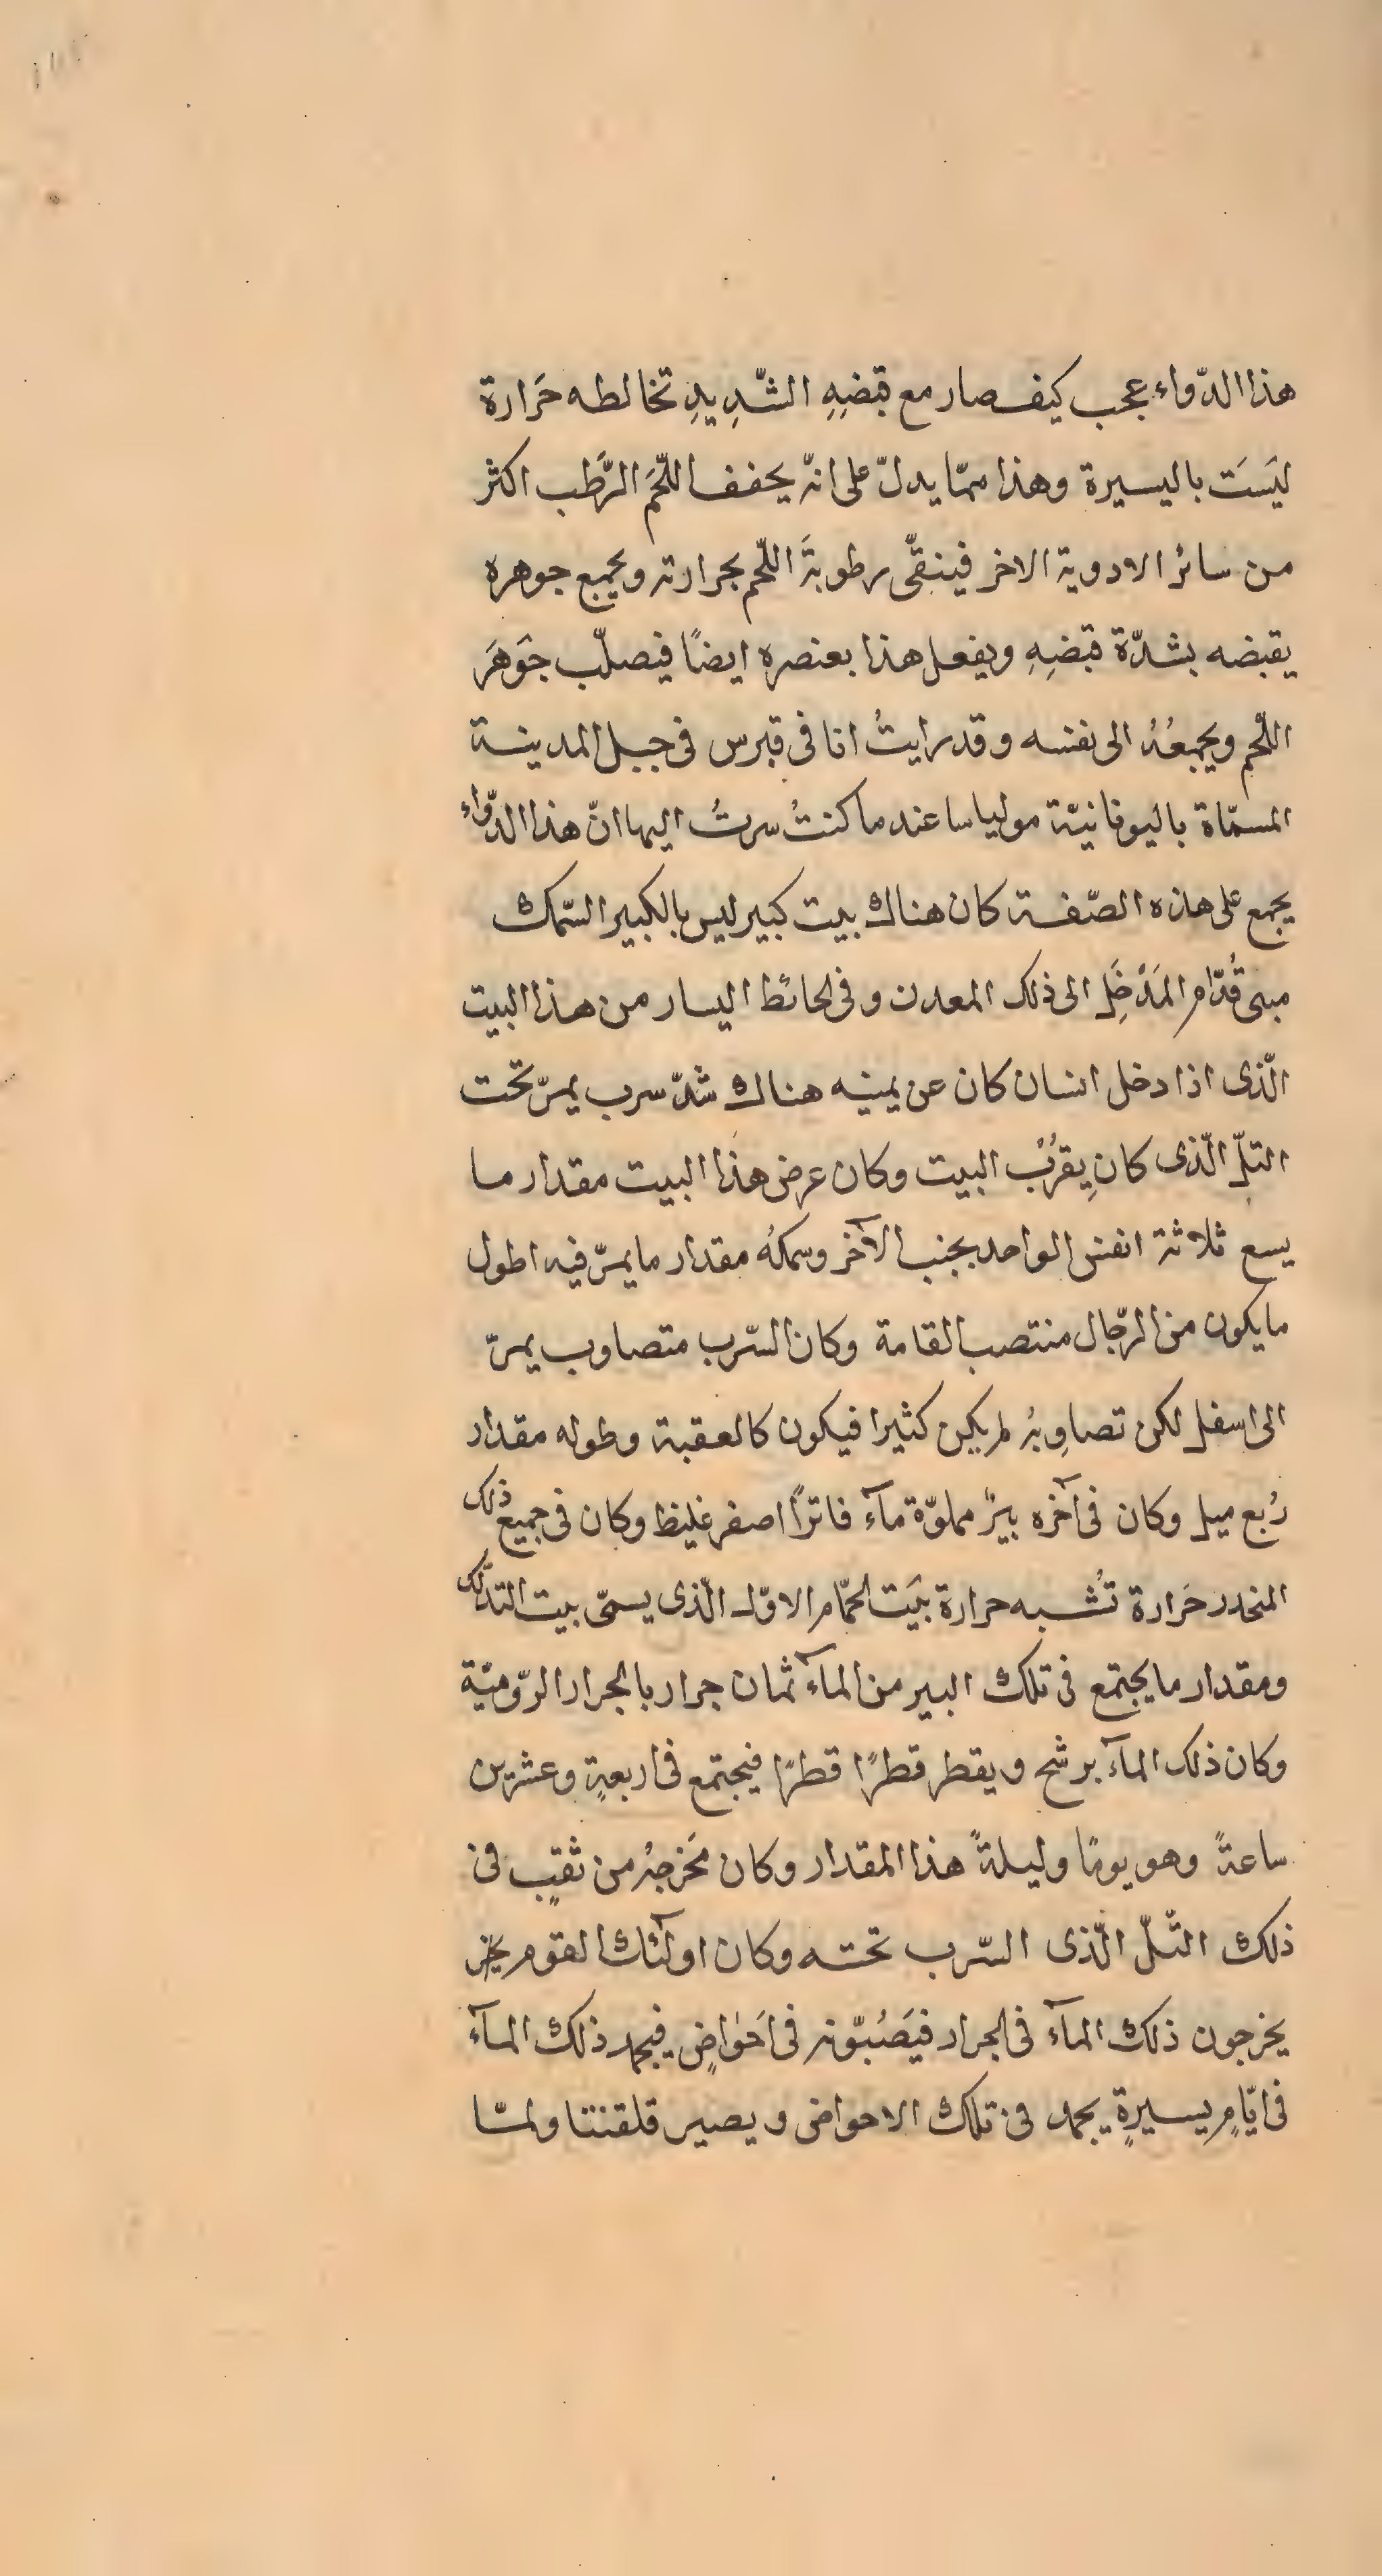 هذا الدّواء عجب كيف صار مع قبضِهِ الشّدِيدِ تخالطه حَرارة
ليَسَت باليسيرة وهذا ممّا يدلّ على انّه يجفف اللّحَم الرَّطب اكثر
من سائر الادوية الاخر فينقّى رطوبةَ اللّحم بحرارته ويجمع جوهره
يقبضه بشدّة قبَضِهِ ويفعل هذا بعنصره ايضًا فيصلّب جَوهَر
اللّحم ويجمعُهُ الى نفسه وقد رايتُ انا فى قبرس فى جبل المدينة
المسمّاة باليونانيّة مولياسا عند ما كنتُ سرتُ اليها انّ هذا الدّواء
يجمع على هذه الصّفة كان هناك بيت كبير ليس بالكبير السّمك
مبنى قُدّام المَدْخَلِ الى ذلك المعدن وفى لحائط اليسار من هذا البيت
الّذى اذا دخل انسان كان عن يمينه هناك شدّ سرب يمرّ تحت
التلّ الّذى كان يقرُب البيت وكان عرض هذا البيت مقدار ما
يسع ثلاثة انفس الواحد بجنب الآخر وسمكهُ مقدار ما يمرّ فيه اطول
ما يكون من الرّجال منتصب القامة وكان السّرب متصاوب يمرّ
الى اسفل لكن تصاوِبهُ لم يكن كثيرا فيكون كالعقبة وطوله مقدار
رُبع ميل وكان فى آخره بيرٌ مملوّة مآء فاترًا اصفر غليظ وكان فى جميع ذلك
المنحدر حَرارة تُشبه حرارة بيَت لحمّام الاوّل الّذى يسمّى بيت التدلّك
ومقدار ما يجتمع فى تلك البير من المآء ثمان جرار بالجرار الرّوميّة
وكان ذلك المآء برشح ويقطر قطرًا قطرًا فيجتمع فى اربعةٍ وعشرين
ساعةً وهو يومًا وليلةً هذا المقدار وكان مَخرجهُ من ثقبٍ فى
ذلك التّلّ الّذى السّرب تحته وكان اولٓئك القوم
يخرجون ذلك المآء فى الجرار فيَصُبّونه فى اَحَواضٍ فيجمد ذلك المآء
فى ايّامٍ يسيرةٍ يجمد فى تلك الاحواض ويصير قلقنتا ولمّا